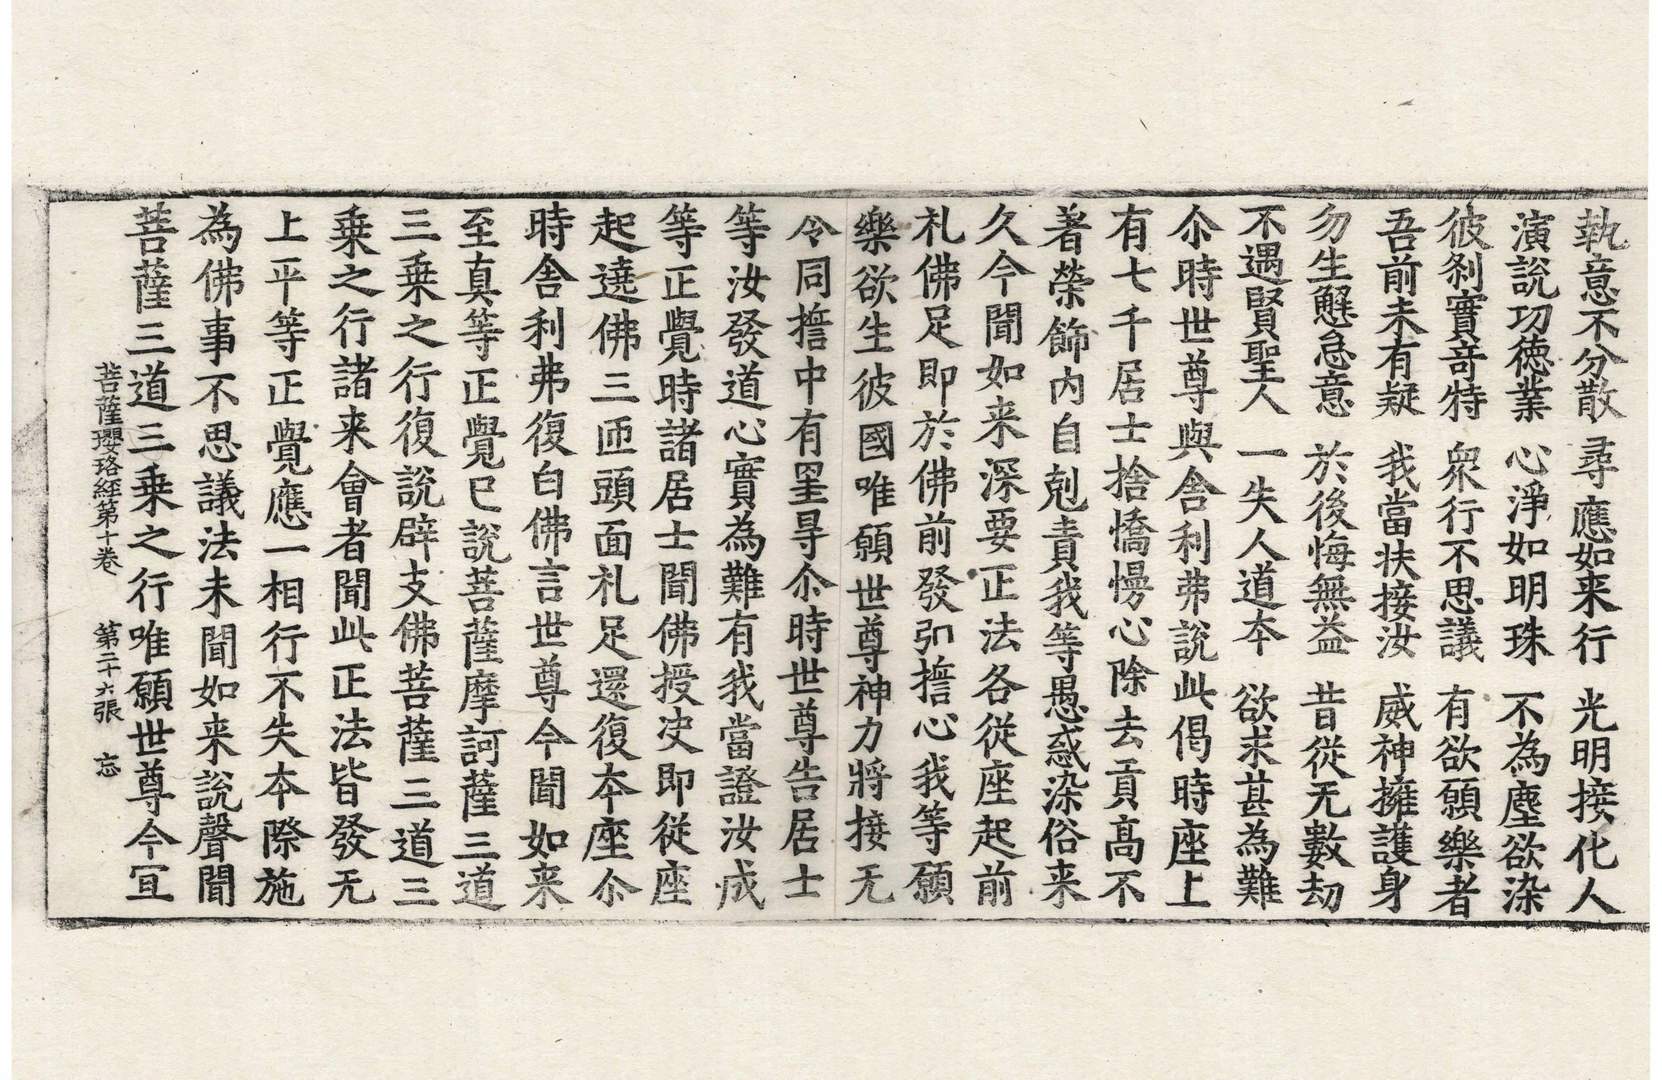 執意不分散　尋應如来行　光明接化人
演說功德業　心淨如明珠　不為塵欲染
彼剎實竒特　衆行不思議　有欲願樂者
吾前未有疑　我當扶接汝　威神擁護身
勿生懈怠意　於後悔無益　昔從无數劫
不遇賢聖人　一失人道夲　欲求甚為難
尒時世尊與舎利弗說此偈時座上
有七千居士捨憍慢心除去貢髙不
著榮飾内自剋責我等愚惑染俗来
久今聞如来深要正法各從座起前
礼佛足即於佛前發弘誓心我等願
樂欲生彼國唯願世尊神力將接无
令同誓中有罣㝵尒時世尊告居士
等汝發道心實為難有我當證汝成
等正覺時諸居士聞佛授决即從座
起遶佛三匝頭面礼足還復夲座尒
時舎利弗復白佛言世尊今聞如来
至真等正覺已說菩薩摩訶薩三道
三乗之行復說辟支佛菩薩三道三
乗之行諸来會者聞此正法皆發无
上平等正覺應一相行不失夲際施
為佛事不思議法未聞如来說聲聞
菩薩三道三乗之行唯願世尊今冝
菩薩瓔珞經第十卷　第二十六張　忘